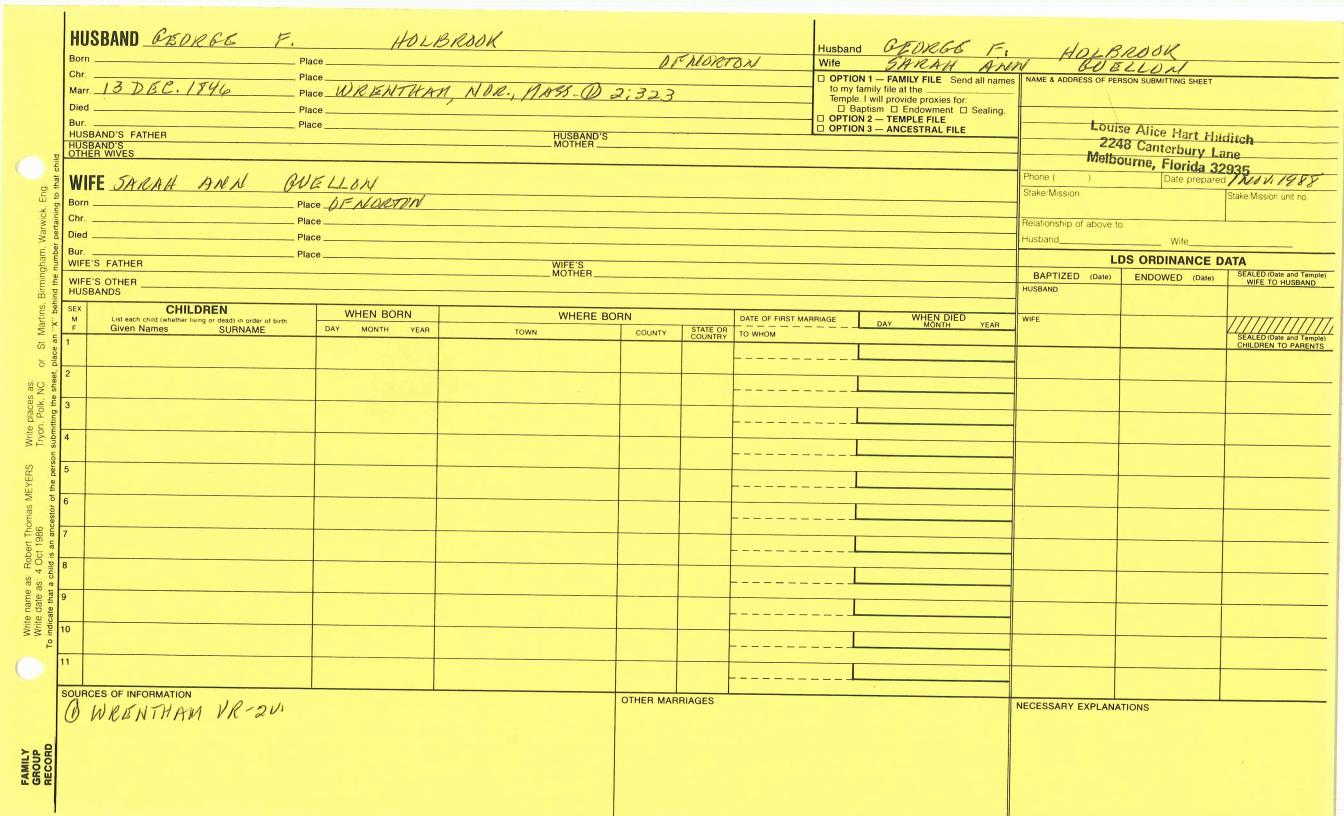 HUSBAND GEORGE F. HOLBROOK
Born Place OF NORTON
Chr. Place
Marr. 13 DEC. 1846 Place WRENTHAM, NOR., MASS. ① 2:323
Died Place
Bur. Place
HUSBAND'S FATHER HUSBAND'S MOTHER
HUSBAND'S OTHER WIVES
Husband GEORGE F. HOLBROOK
Wife SARAH ANN GUELLON
☐ OPTION 1 — FAMILY FILE Send all names
to my family file at the
Temple. I will provide proxies for:
☐ Baptism ☐ Endowment ☐ Sealing.
☐ OPTION 2 — TEMPLE FILE
☐ OPTION 3 — ANCESTRAL FILE
NAME & ADDRESS OF PERSON SUBMITTING SHEET
Louise Alice Hart Hilditch
2248 Canterbury Lane
Melbourne, Florida 32935
Phone ( ) Date prepared 1 NOV. 1988
Stake/Mission Stake/Mission unit no.
Relationship of above to
Husband Wife
WIFE SARAH ANN GUELLON
Born Place OF NORTON
Chr. Place
Died Place
Bur. Place
WIFE'S FATHER WIFE'S MOTHER
WIFE'S OTHER HUSBANDS
LDS ORDINANCE DATA
BAPTIZED (Date) ENDOWED (Date) SEALED (Date and Temple) WIFE TO HUSBAND
HUSBAND
WIFE
SEALED (Date and Temple) CHILDREN TO PARENTS
SEX M F
CHILDREN
List each child (whether living or dead) in order of birth
Given Names SURNAME
WHEN BORN
DAY MONTH YEAR
WHERE BORN
TOWN COUNTY STATE OR COUNTRY
DATE OF FIRST MARRIAGE
TO WHOM
WHEN DIED
DAY MONTH YEAR
1
2
3
4
5
6
7
8
9
10
11
SOURCES OF INFORMATION
① WRENTHAM VR-2v.
OTHER MARRIAGES
NECESSARY EXPLANATIONS
Write name as: Robert Thomas MEYERS Write places as: Tryon, Polk, NC or St Martins, Birmingham, Warwick, Eng.
Write date as: 4 Oct 1986
To indicate that a child is an ancestor of the person submitting the sheet, place an "X" behind the number pertaining to that child
FAMILY
GROUP
RECORD